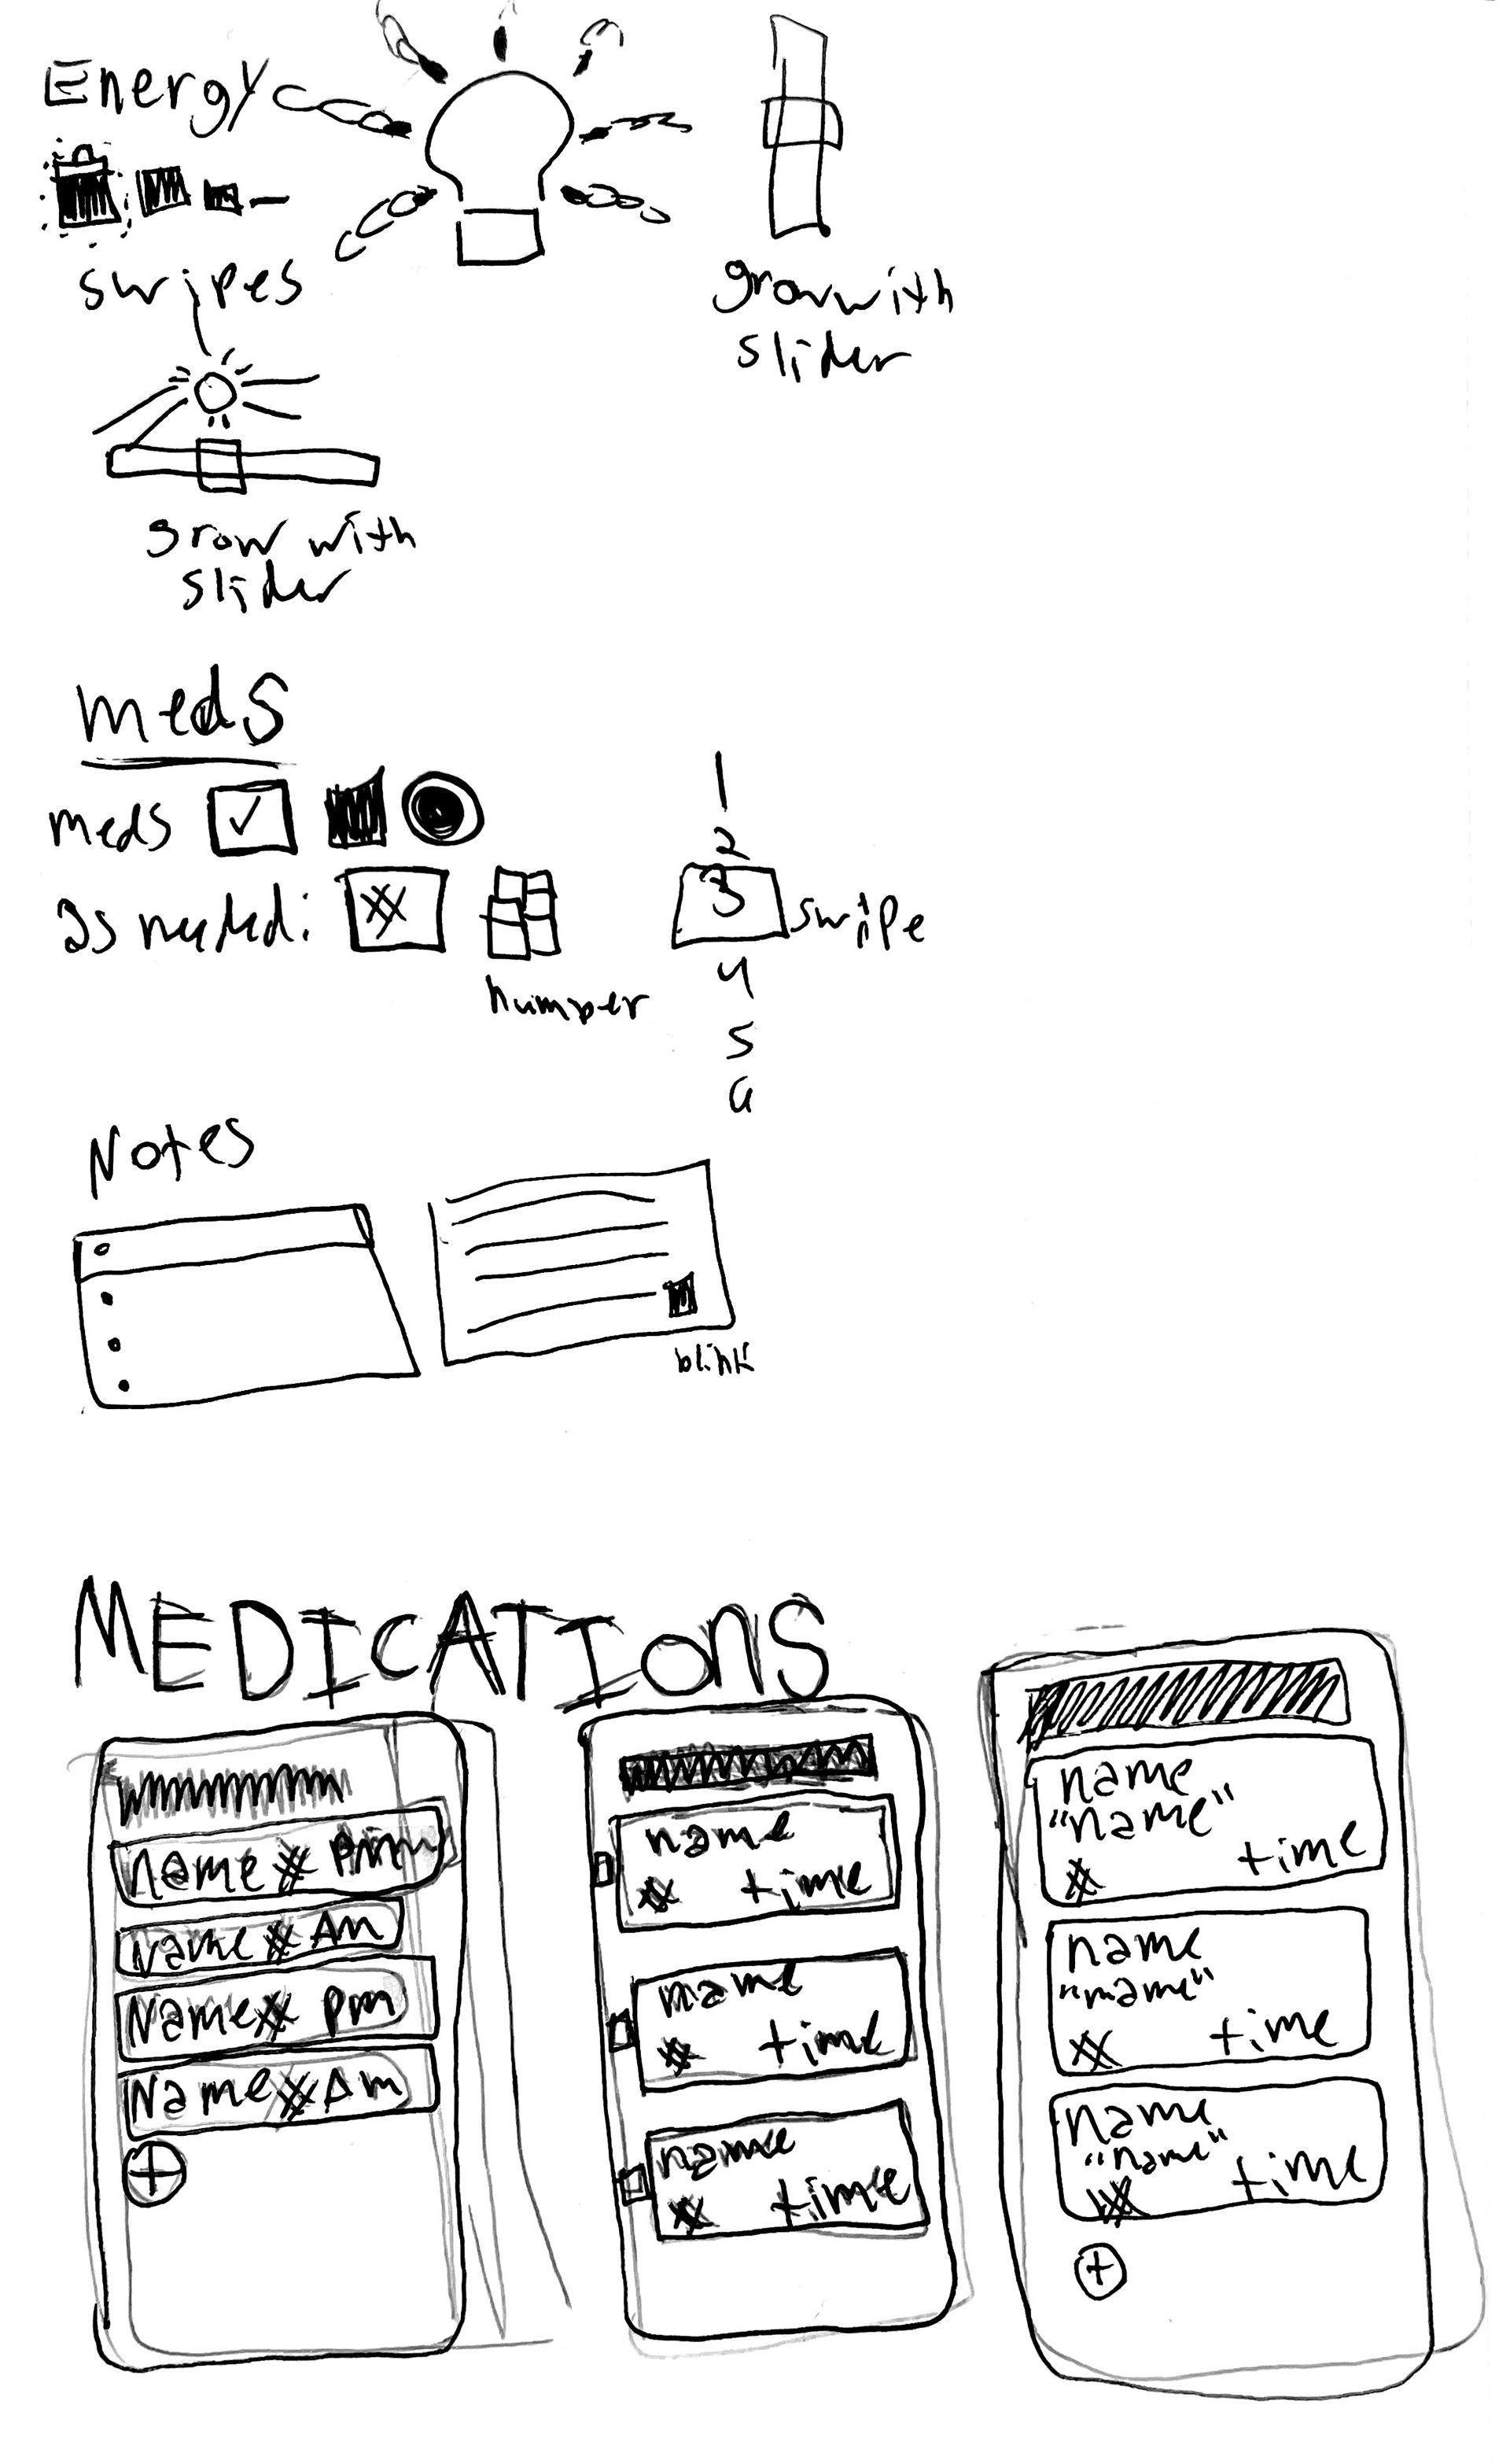 Energy
swipes
grow with
slider
grow with
slider
meds
meds
as needed:
humper
1
2
3 swipe
4
5
6
Notes
blink
MEDICATIONS
name # pm
Name # Am
Name # pm
Name # Am
+
name
# time
name
# time
name
# time
name
"name"
# time
name
"name"
# time
name
"name"
# time
+